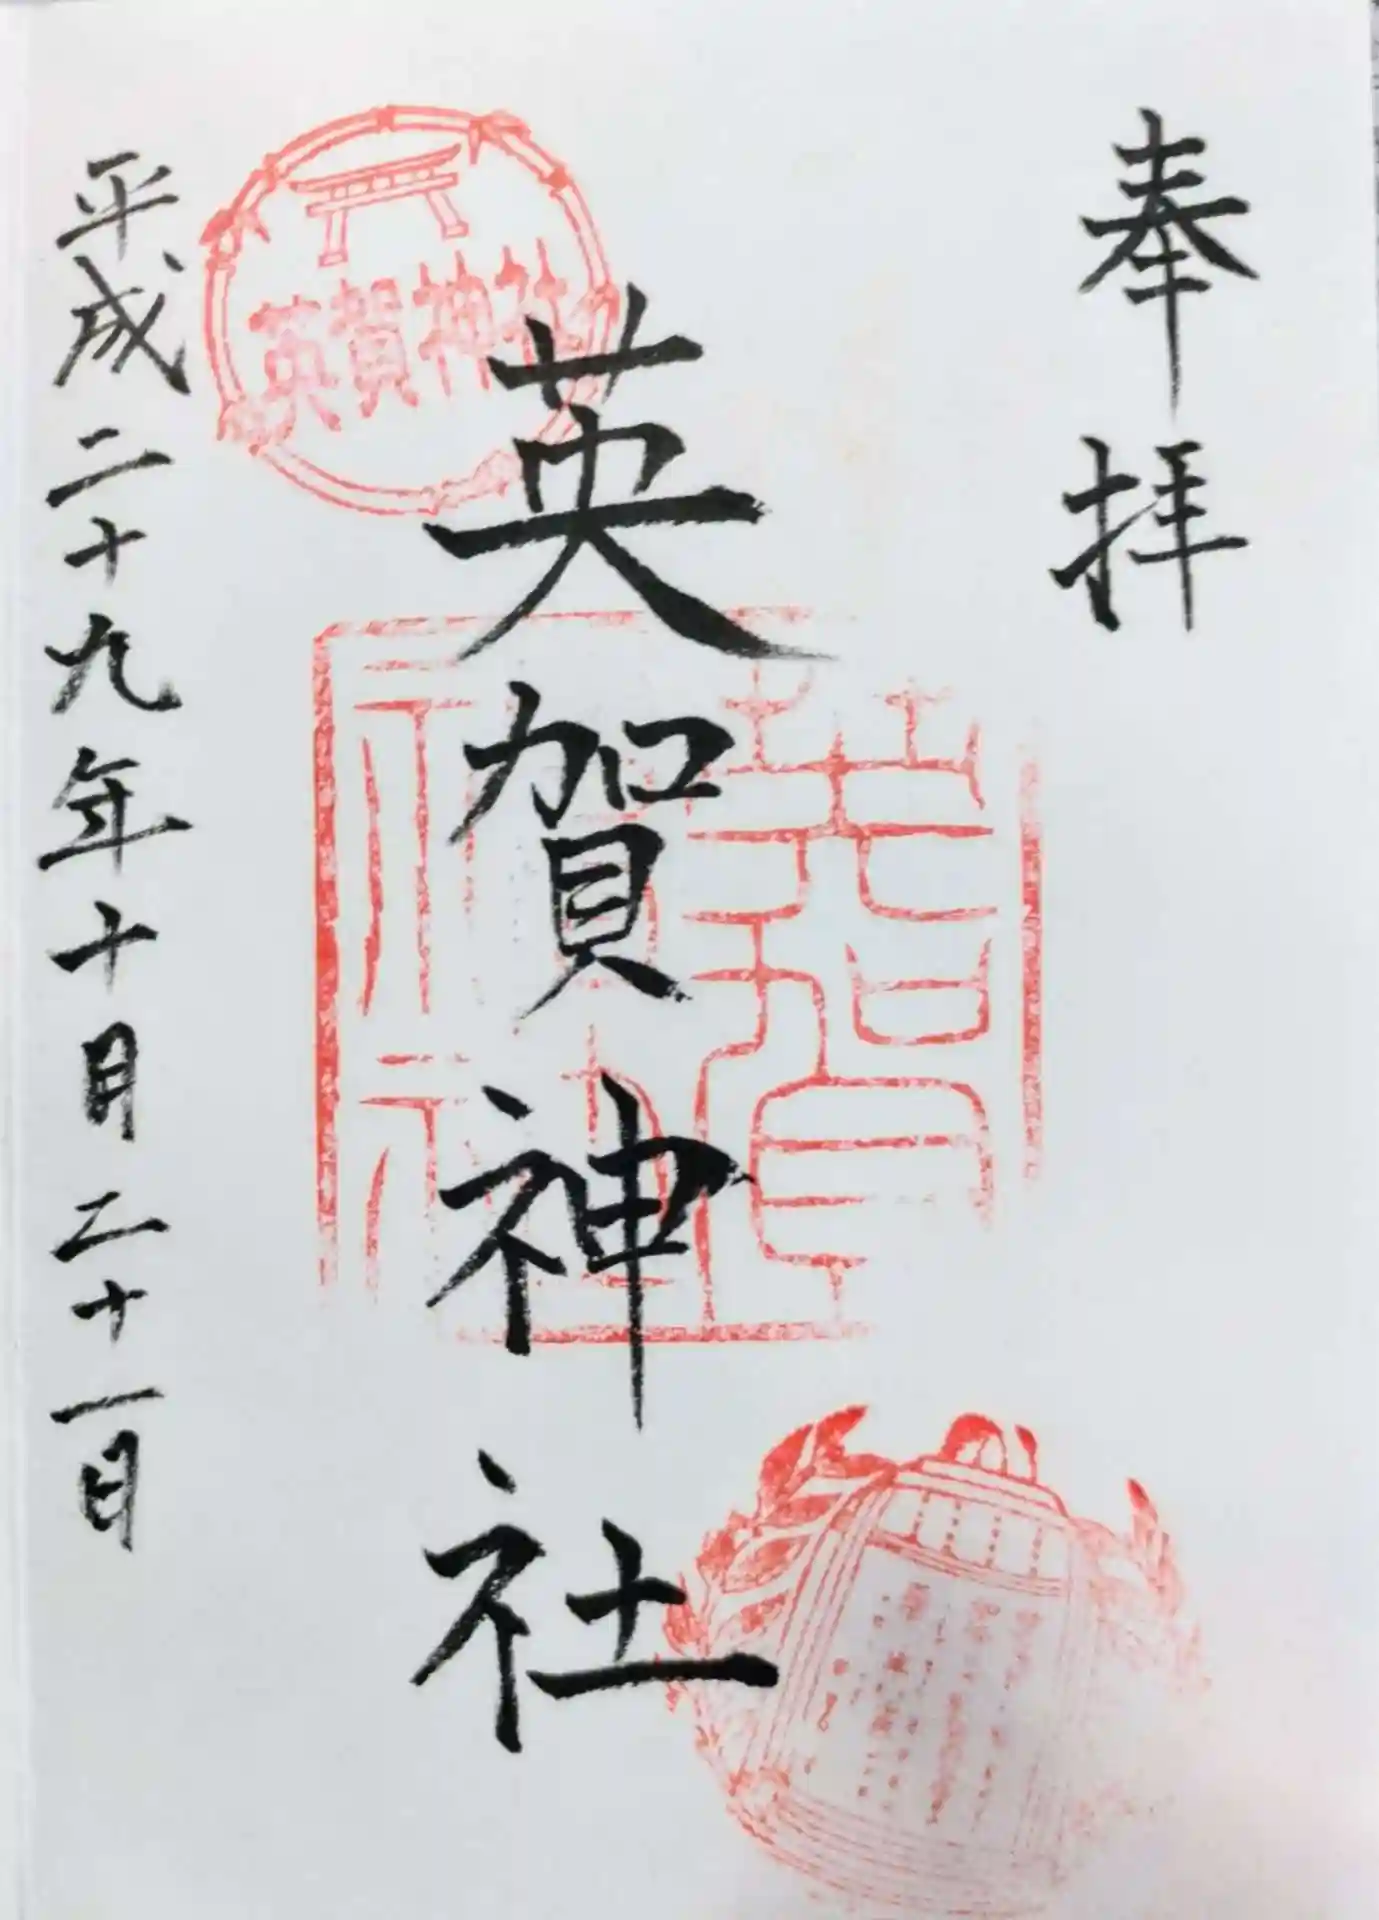 奉拝
英賀神社
英賀神社
平成二十九年十月二十一日